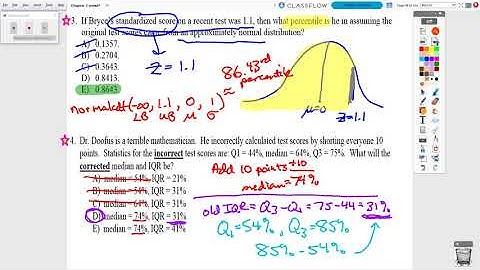 CLASSFLOW
3. If Bryce's standardized score on a recent test was 1.1, then what percentile is he in assuming the
original test scores from an approximately normal distribution?
A) 0.1357.
B) 0.2704.
C) 0.3643.
D) 0.8413.
E) 0.8643
z = 1.1
86.43rd
percentile
normalcdf(-∞, 1.1, 0, 1) ≈
LB UB μ σ
μ=0
z=1.1
4. Dr. Doofus is a terrible mathematician. He incorrectly calculated test scores by shorting everyone 10
points. Statistics for the incorrect test scores are: Q1 = 44%, median = 64%, Q3 = 75%. What will the
corrected median and IQR be?
A) median = 54%, IQR = 21%
B) median = 54%, IQR = 31%
C) median = 64%, IQR = 31%
D) median = 74%, IQR = 31%
E) median = 74%, IQR = 41%
Add 10 points +10
median = 74%
old IQR = Q3 - Q1 = 75 - 44 = 31%
Q1 = 54%, Q3 = 85%
85% - 54%